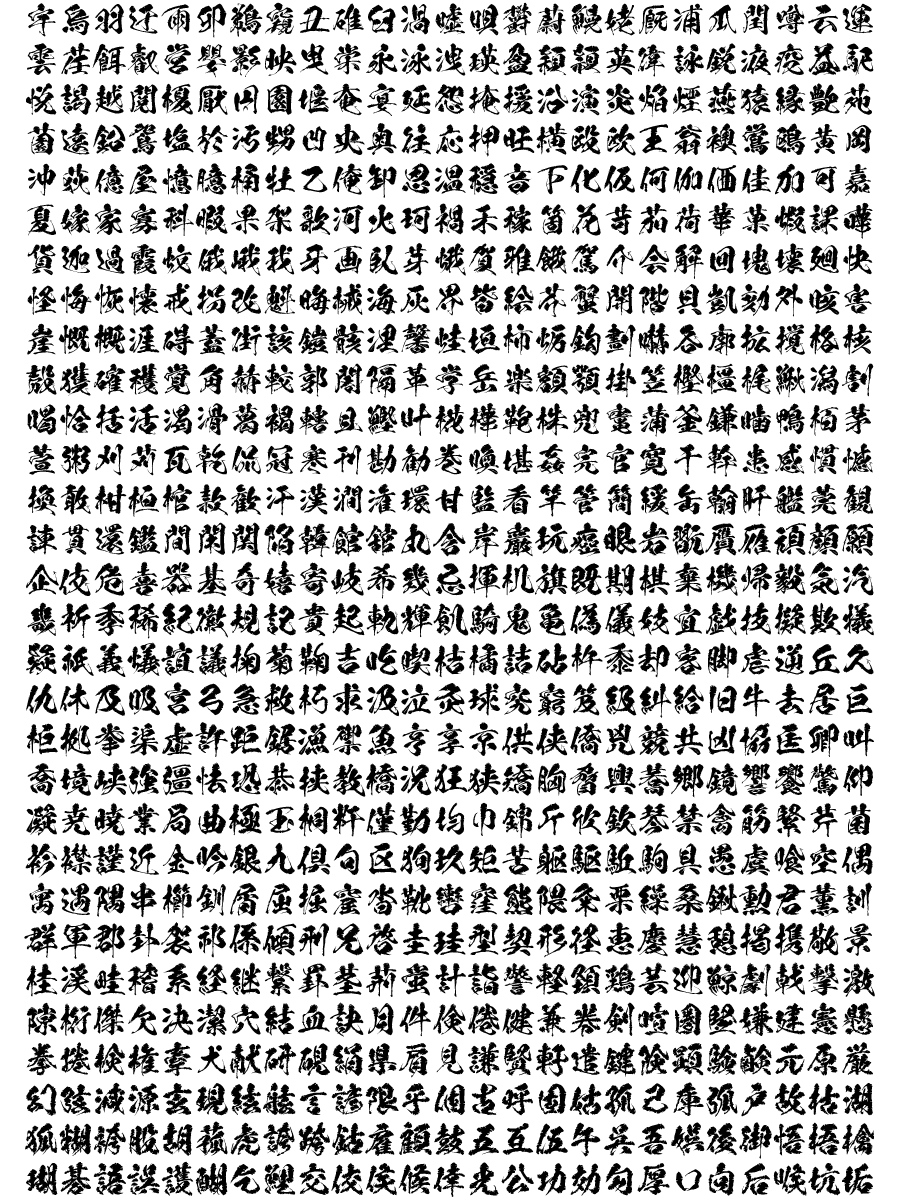 宇烏羽迂雨卯鵜窺丑碓臼渦嘘唄欝蔚鰻姥厩浦瓜閏噂云運
雲荏餌叡営嬰影映曳栄永泳洩瑛盈穎頴英衛詠鋭液疫益駅
悦謁越閲榎厭円園堰奄宴延怨掩援沿演炎焔煙燕猿縁艶苑
薗遠鉛鴛塩於汚甥凹央奥往応押旺横殴欧王翁襖鴬鴎黄岡
沖荻億屋憶臆桶牡乙俺卸恩温穏音下化仮何伽価佳加可嘉
夏嫁家寡科暇果架歌河火珂禍禾稼箇花苛茄荷華菓蝦課嘩
貨迦過霞蚊俄峨我牙画臥芽蛾賀雅餓駕介会解回塊壊廻快
怪悔恢懐戒拐改魁晦械海灰界皆絵芥蟹開階貝凱劾外咳害
崖慨概涯碍蓋街該鎧骸浬馨蛙垣柿蛎鈎劃嚇各廓拡撹格核
殻獲確穫覚角赫較郭閣隔革学岳楽額顎掛笠樫橿梶鰍潟割
喝恰括活渇滑葛褐轄且鰹叶椛樺鞄株兜竃蒲釜鎌噛鴨栢茅
萱粥刈苅瓦乾侃冠寒刊勘勧巻喚堪姦完官寛干幹患感慣憾
換敢柑桓棺款歓汗漢澗潅環甘監看竿管簡緩缶翰肝艦莞観
諌貫還鑑間閑関陥韓館舘丸含岸巌玩癌眼岩翫贋雁頑顔願
企伎危喜器基奇嬉寄岐希幾忌揮机旗既期棋棄機帰毅気汽
畿祈季稀紀徽規記貴起軌輝飢騎鬼亀偽儀妓宜戯技擬欺犠
疑祇義蟻誼議掬菊鞠吉吃喫桔橘詰砧杵黍却客脚虐逆丘久
仇休及吸宮弓急救朽求汲泣灸球究窮笈級糾給旧牛去居巨
拒拠挙渠虚許距鋸漁禦魚亨享京供侠僑兇競共凶協匡卿叫
喬境峡強彊怯恐恭挟教橋況狂狭矯胸脅興蕎郷鏡響饗驚仰
凝尭暁業局曲極玉桐粁僅勤均巾錦斤欣欽琴禁禽筋緊芹菌
衿襟謹近金吟銀九倶句区狗玖矩苦躯駆駈駒具愚虞喰空偶
寓遇隅串櫛釧屑屈掘窟沓靴轡窪熊隈粂栗繰桑鍬勲君薫訓
群軍郡卦袈祁係傾刑兄啓圭珪型契形径恵慶慧憩掲携敬景
桂渓畦稽系経継繋罫茎荊蛍計詣警軽頚鶏芸迎鯨劇戟撃激
隙桁傑欠決潔穴結血訣月件倹倦健兼券剣喧圏堅嫌建憲懸
拳捲検権牽犬献研硯絹県肩見謙賢軒遣鍵険顕験鹸元原厳
幻弦減源玄現絃舷言諺限乎個古呼固姑孤己庫弧戸故枯湖
狐糊袴股胡菰虎誇跨鈷雇顧鼓五互伍午呉吾娯後御悟梧檎
瑚碁語誤護醐乞鯉交佼侯候倖光公功効勾厚口向后喉坑垢